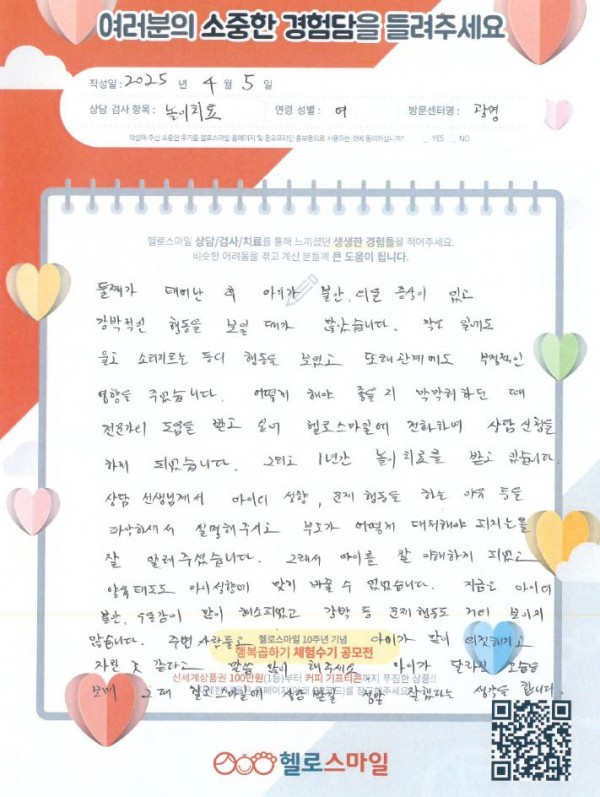 여러분의 소중한 경험담을 들려주세요
작성일 : 2025 년 4 월 5 일
상담 검사 항목 : 놀이치료 연령 성별 : 여 방문센터명 : 광명
작성해 주신 소중한 후기를 헬로스마일 홈페이지 및 온오프라인 홍보용으로 사용하는 것에 동의하십니까? YES NO
헬로스마일 상담/검사/치료를 통해 느끼셨던 생생한 경험들을 적어주세요.
비슷한 어려움을 겪고 계신 분들께 큰 도움이 됩니다.
둘째가 태어난 후 아이가 불안, 증상이 있고
강박적인 행동을 보일 때가 많았습니다. 작은 일에도
울고 소리지르는 등의 행동을 보였고 또래관계에도 부정적인
영향을 주었습니다. 어떻게 해야 좋을지 막막하던 때
전문가의 도움을 받고 싶어 헬로스마일에 전화하여 상담신청을
하게 되었습니다. 그리고 1년간 놀이치료를 받고 있습니다.
상담 선생님께서 아이의 성향, 문제 행동을 하는 이유 등을
파악하셔서 설명해주시고 부모가 어떻게 대처해야 되는지를
잘 알려주셨습니다. 그래서 아이를 잘 이해하게 되었고
양육태도도 아이성향에 맞게 바꿀 수 있었습니다. 지금은 아이의
불안, 우울감이 많이 해소되었고 강박 등 문제행동도 거의 보이지
않습니다. 주변 사람들도 아이가 많이 의젓해지고
헬로스마일 10주년 기념
행복곱하기 체험수기 공모전
자란 것 같다고 말씀 많이 해주세요. 아이가 달라진 모습을
신세계상품권 100만원(1등)부터 커피 기프티콘까지 푸짐한 상품!!
보며 그때 헬로스마일에 정말 잘했다는 생각을 합니다.
헬로스마일